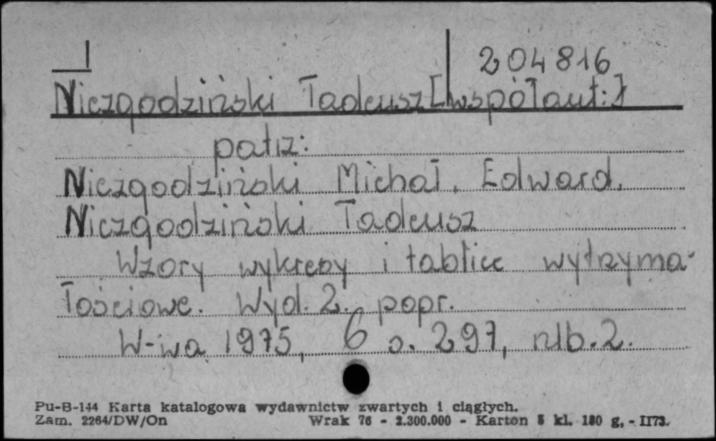 204816
Niezgodziński Tadeusz [współaut:]
patrz:
Niezgodziński Michał, Edward,
Niezgodziński Tadeusz
Wzory wykresy i tablice wytrzyma-
łościowe. Wyd. 2. popr.
W-wa 1975, s. 297, nlb. 2.
Pu-B-144 Karta katalogowa wydawnictw zwartych i ciągłych.
Zam. 2264/DW/On Wrak 76 - 2.300.000 - Karton 5 kl. 180 g. - II73.